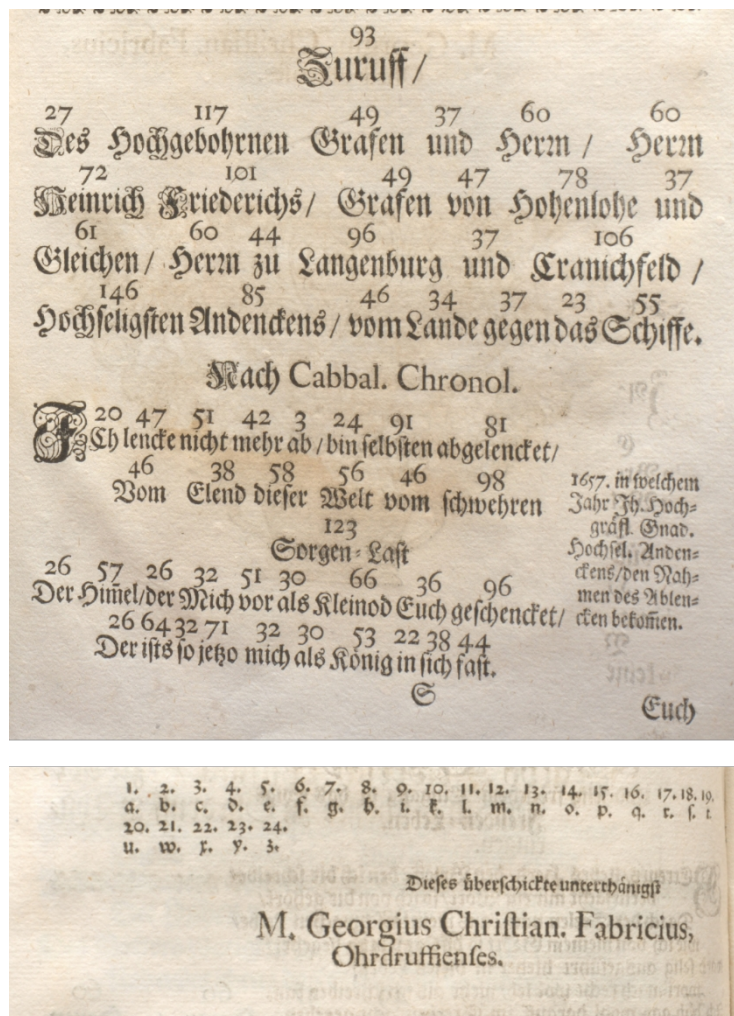 93
Zuruff /
27 117 49 37 60 60
Des Hochgebohrnen Grafen und Herrn / Herrn
72 101 49 47 78 37
Heinrich Friederichs / Grafen von Hohenlohe und
61 60 44 96 37 106
Gleichen / Herrn zu Langenburg und Cranichfeld /
146 85 46 34 37 23 55
Hochseligsten Andenckens / vom Lande gegen das Schiffe.
Nach Cabbal. Chronol.
20 47 51 42 3 24 91 81
ICh lencke nicht mehr ab / bin selbsten abgelencket /
46 38 58 56 46 98
Vom Elend dieser Welt vom schwehren
123
Sorgen-Last
26 57 26 32 51 30 66 36 96
Der Him̃el / der Mich vor als Kleinod Euch geschencket /
26 64 32 71 32 30 53 22 38 44
Der ists so jetzo mich als König in sich fast.
1657. in welchem
Jahr Ih. Hoch-
gräfl. Gnad.
Hochsel. Anden-
ckens / den Nah-
men des Ablen-
cken bekom̃en.
S
Euch
1. 2. 3. 4. 5. 6. 7. 8. 9. 10. 11. 12. 13. 14. 15. 16. 17. 18. 19.
a. b. c. d. e. f. g. h. i. k. l. m. n. o. p. q. r. s. t
20. 21. 22. 23. 24.
u. w. x. y. z.
Dieses überschickte unterthänigst
M. Georgius Christian. Fabricius,
Ohrdruffienses.